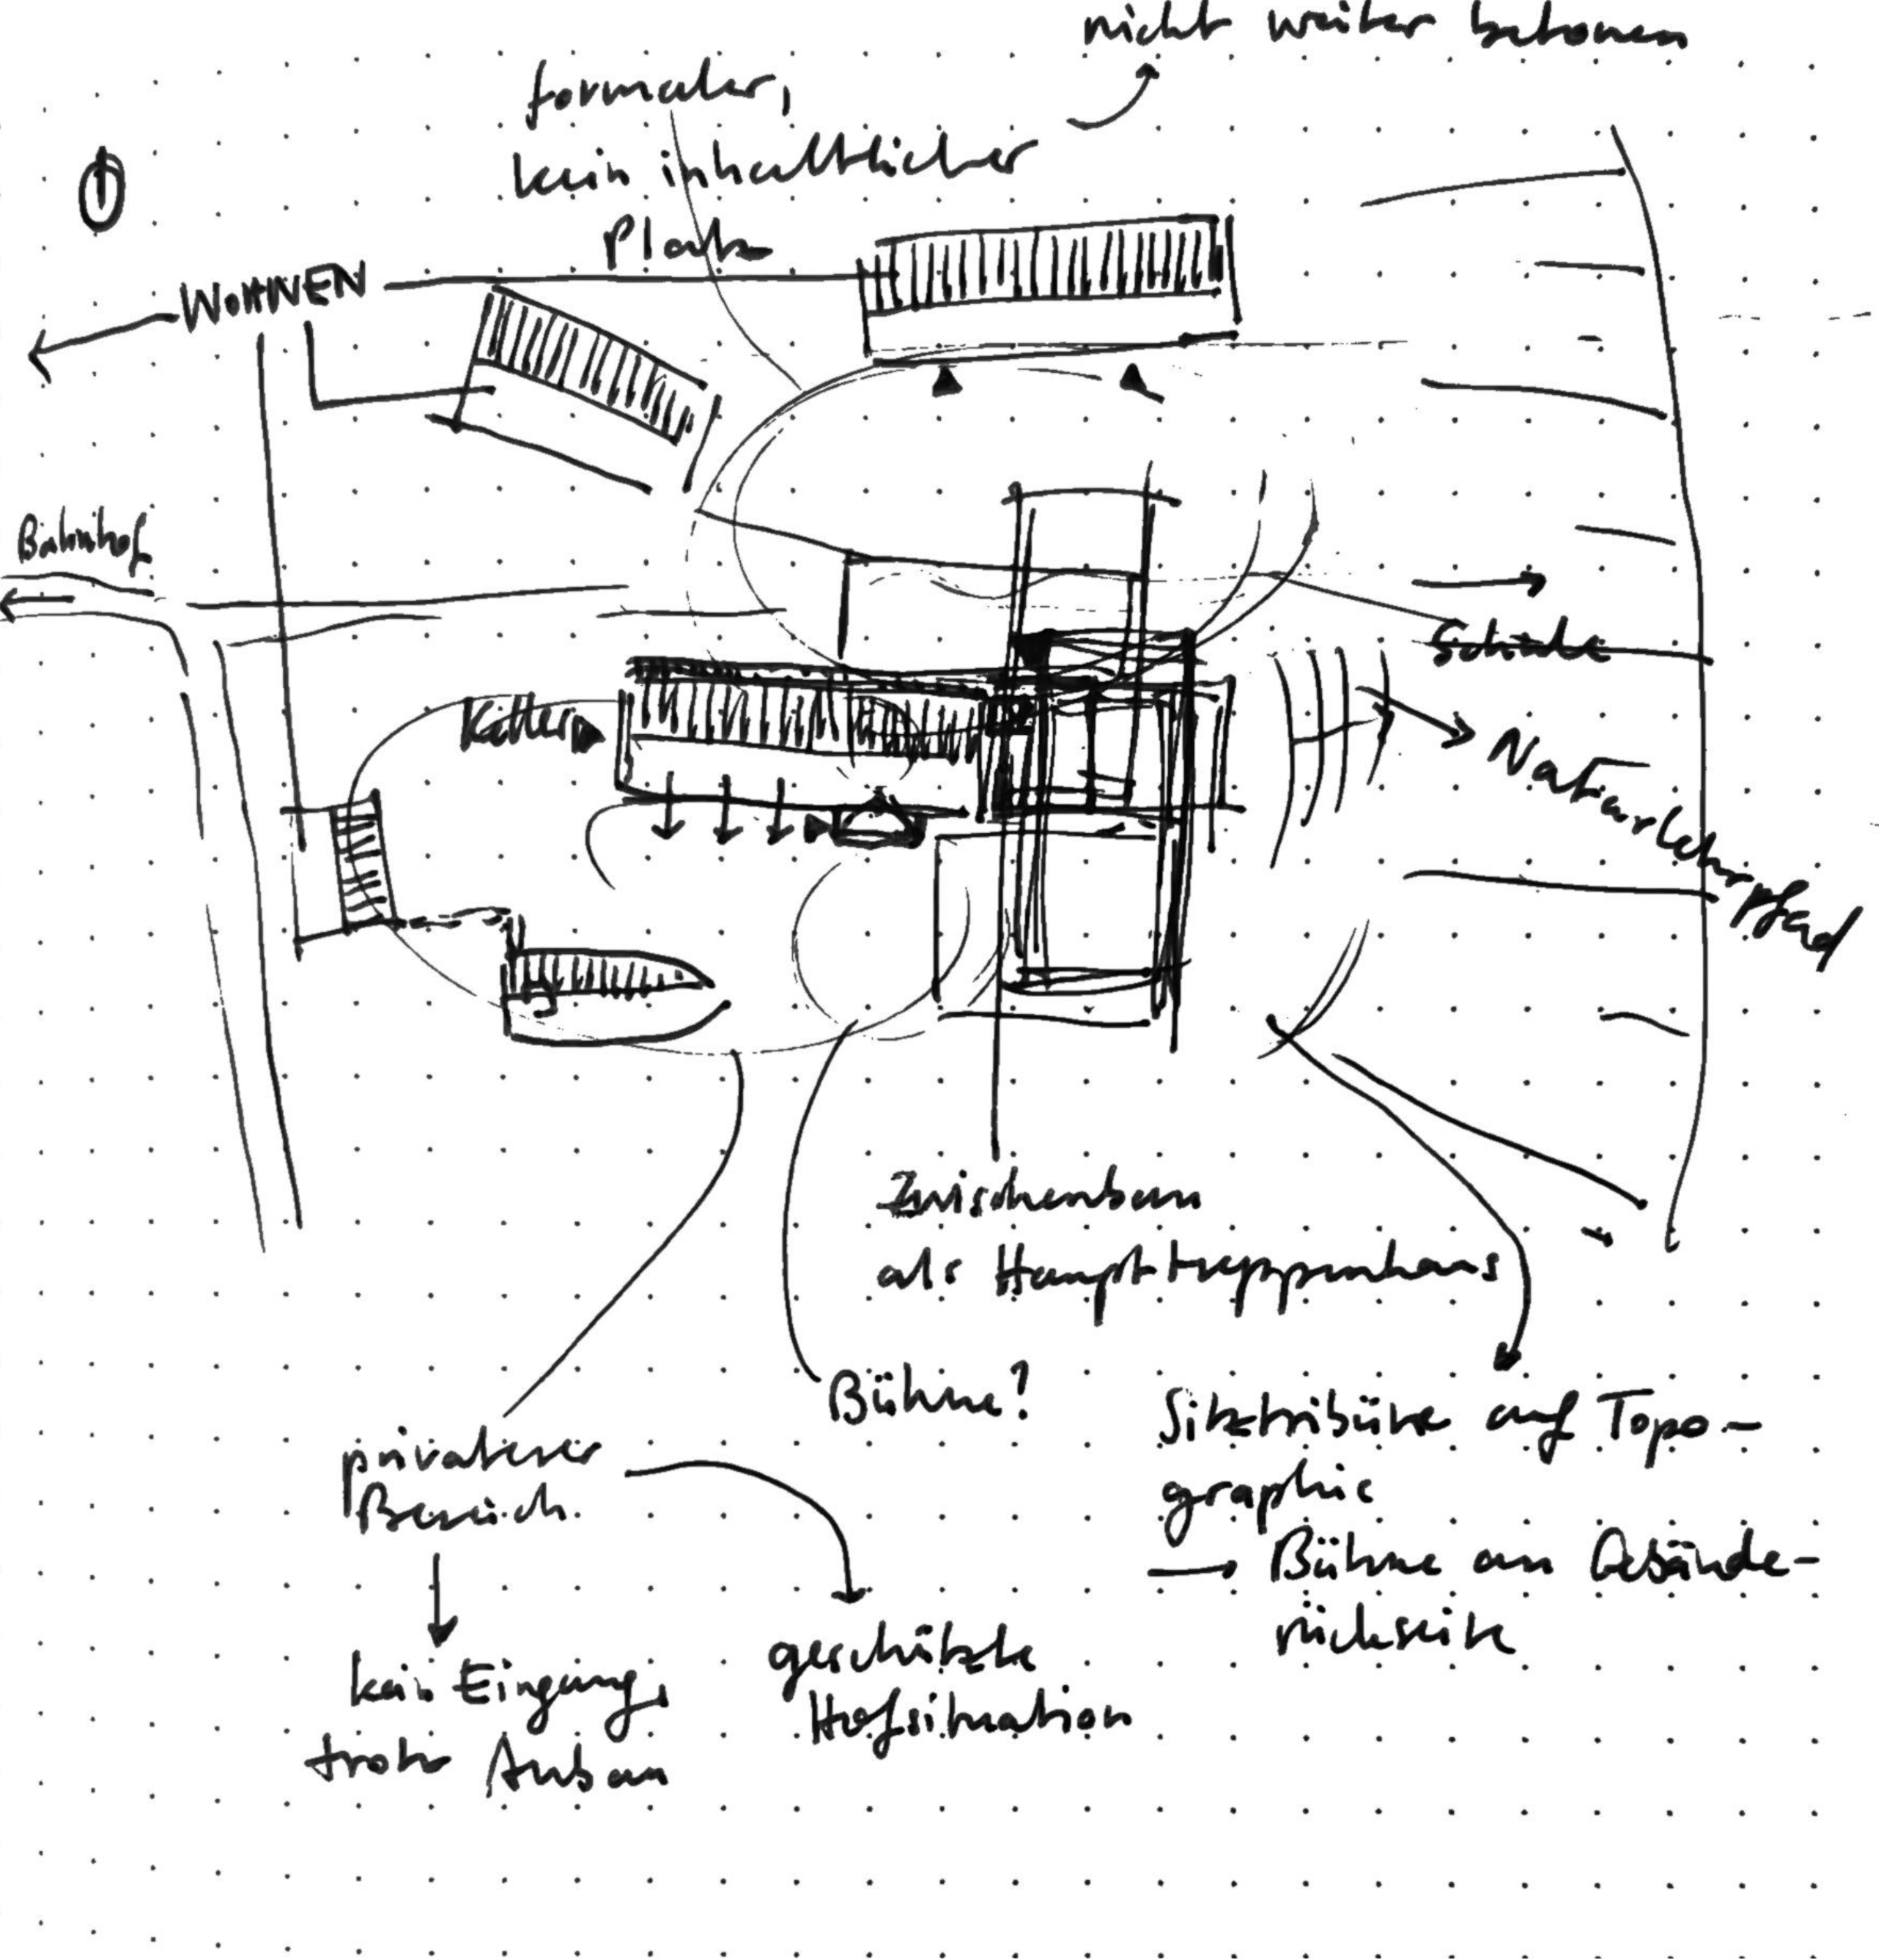 nicht weiter betonen
formaler,
kein inhaltlicher
Platz
WOHNEN
Bahnhof
Schule
Keller
Naturlehrpfad
Zwischenbau
als Haupttreppenhaus
Bühne?
Sitztribüne auf Topo-
graphie
→ Bühne an Gebäude-
rückseite
privaterer
Bereich
geschützte
Hofsituation
kein Eingang,
trotz Anbau